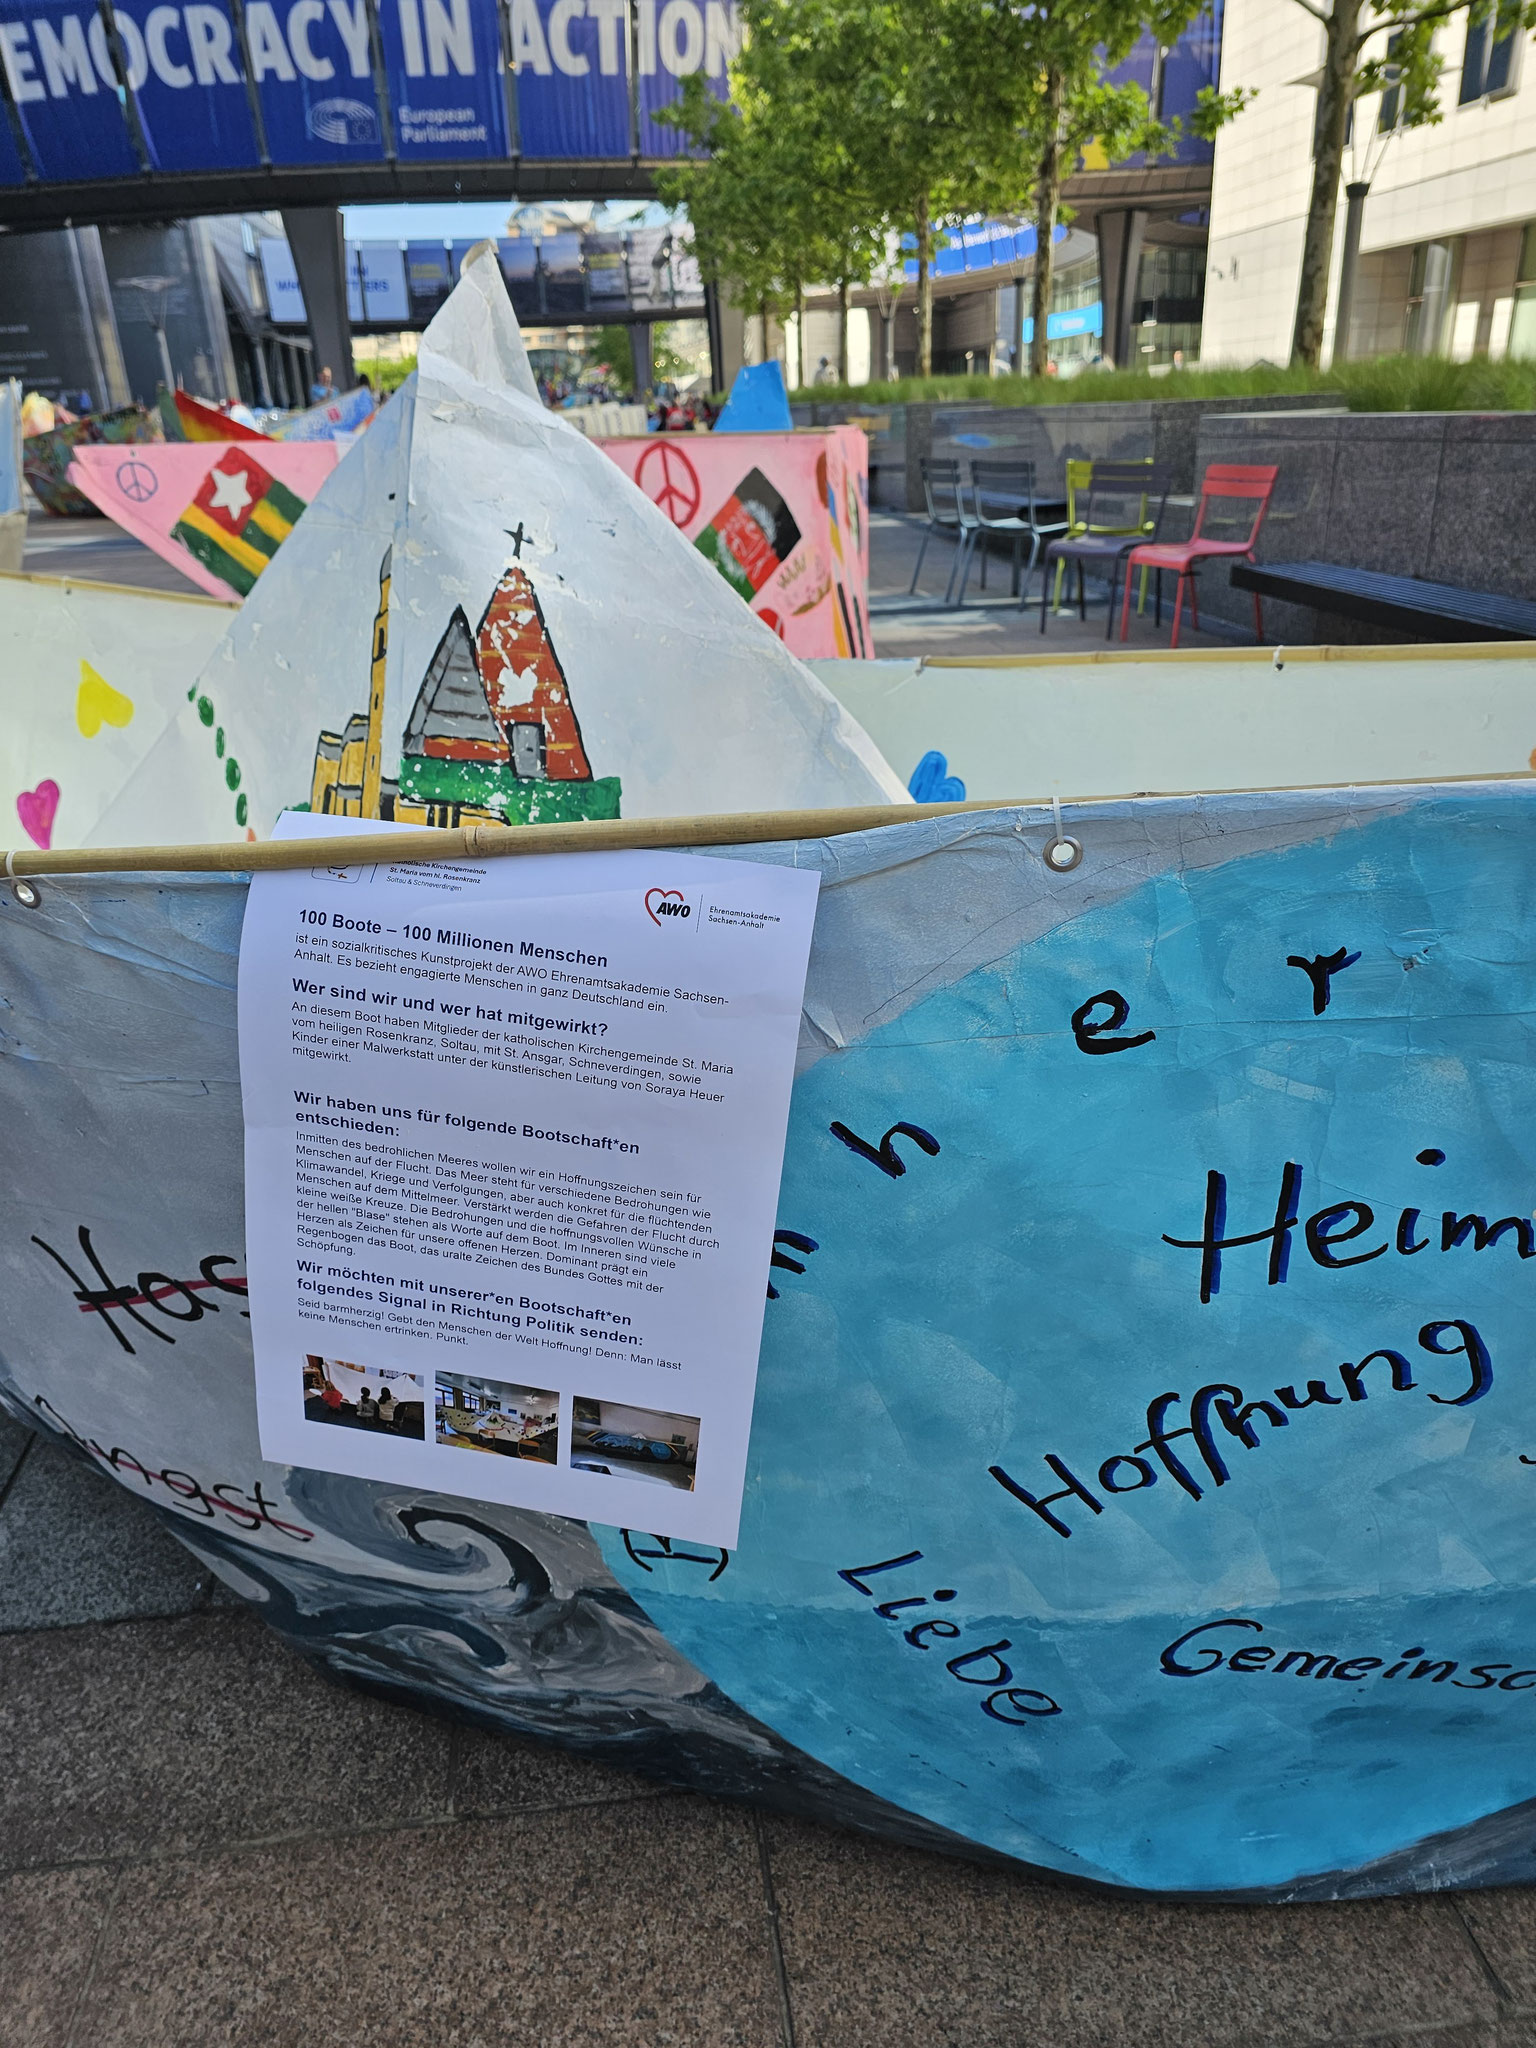 EMOCRACY IN ACTION
European
Parliament
Katholische Kirchengemeinde
St. Maria vom hl. Rosenkranz
Soltau & Schneverdingen
AWO
Ehrenamtsakademie
Sachsen-Anhalt
100 Boote – 100 Millionen Menschen
ist ein sozialkritisches Kunstprojekt der AWO Ehrenamtsakademie Sachsen-
Anhalt. Es bezieht engagierte Menschen in ganz Deutschland ein.
Wer sind wir und wer hat mitgewirkt?
An diesem Boot haben Mitglieder der katholischen Kirchengemeinde St. Maria
vom heiligen Rosenkranz, Soltau, mit St. Ansgar, Schneverdingen, sowie
Kinder einer Malwerkstatt unter der künstlerischen Leitung von Soraya Heuer
mitgewirkt.
Wir haben uns für folgende Bootschaft*en
entschieden:
Inmitten des bedrohlichen Meeres wollen wir ein Hoffnungszeichen sein für
Menschen auf der Flucht. Das Meer steht für verschiedene Bedrohungen wie
Klimawandel, Kriege und Verfolgungen, aber auch konkret für die flüchtenden
Menschen auf dem Mittelmeer. Verstärkt werden die Gefahren der Flucht durch
kleine weiße Kreuze. Die Bedrohungen und die hoffnungsvollen Wünsche in
der hellen "Blase" stehen als Worte auf dem Boot. Im Inneren sind viele
Herzen als Zeichen für unsere offenen Herzen. Dominant prägt ein
Regenbogen das Boot, das uralte Zeichen des Bundes Gottes mit der
Schöpfung.
Wir möchten mit unserer*en Bootschaft*en
folgendes Signal in Richtung Politik senden:
Seid barmherzig! Gebt den Menschen der Welt Hoffnung! Denn: Man lässt
keine Menschen ertrinken. Punkt.
h e r
Heim
Hoffnung
Liebe
Gemeinsc
Has
Angst